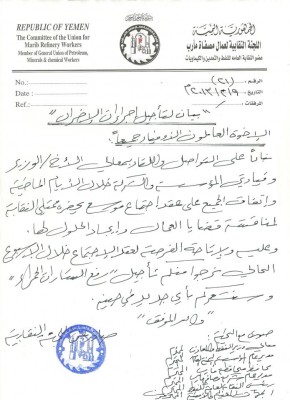 REPUBLIC OF YEMEN
The Committee of the Union for
Marib Refinery Workers
Member of General Union of Petroleum,
Minerals & chemical Workers
الجمهورية اليمنية
اللجنة النقابية لعمال مصفاة مأرب
عضو النقابة العامة للنفط والمعادن والكيماويات
No.: الرقم : (٢١)
Date: التاريخ : ٢٠١٣/٣/٩م
Ref.: المرفقات :
" بيان لتأجيل إجراءات الإضراب "
الإخوة العاملون
بناءً على التواصل واللقاء بمعالي الأخ / الوزير
وقيادتي المؤسسة والشركة خلال الأيام الماضية
واتفاق الجميع على عقد اجتماع موسع بحضور ممثلي النقابة
لمناقشة قضايا العمال وإيجاد الحلول لها.
وعليه ولإتاحة الفرصة لعقد الاجتماع خلال الأسبوع
الحالي نرجوا منكم تأجيل " رفع الشارات الحمراء "
وسنشعركم بأي جديد في حينه
" والله الموفق "
صورة مع التحية